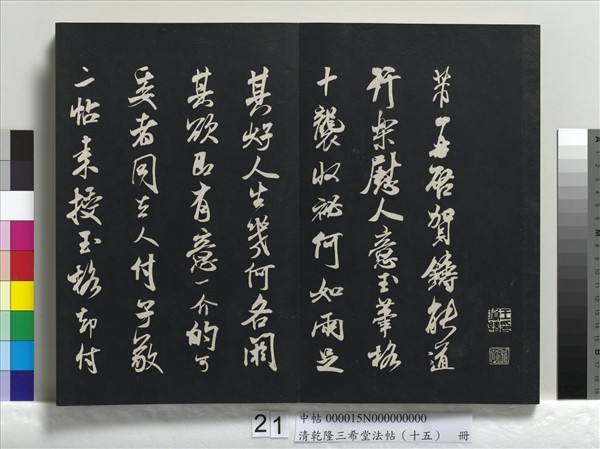 芾再啓賀鑄能道
行李慰人意玉筆格
十襲收祕何如兩足
其好人生幾何各闕
其欲即有意一介的可
委者同去人付子敬
二帖來授玉格却付
21
中帖 000015N000000000
清乾隆三希堂法帖（十五） 冊